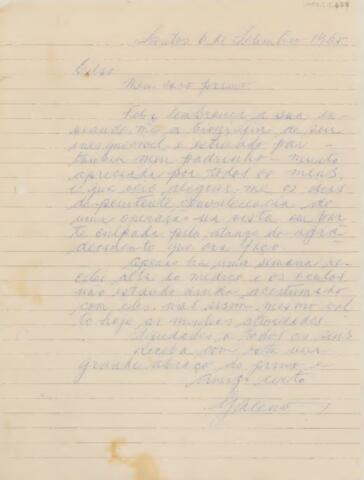 Santos 6 de Setembro 1965
Celso
Meu caro primo.
Feliz lembrança a sua en-
viando-me a biografia de seu
inesquecível e estimado pai
também meu padrinho - muito
apreciada por todos os meus,
e que veio alegrar-me os dias
de penitente convalescença de
uma operação na vista em par
te culpada pelo atraso do agra
decimento que ora faço.
Apenas ha uma semana re-
cebi alta do médico e os oculos
não estando ainda acostumado
com eles, mas assim mesmo vol
to hoje as minhas atividades.
Saudades a todos os seus
receba com esta um
grande abraço do primo e
amigo certo